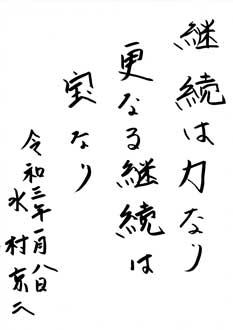 継続は力なり
更なる継続は
宝なり
令和三年一月八日
水村京二